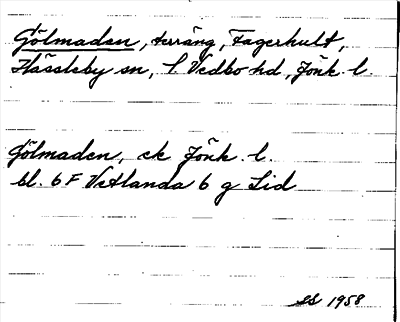 Gölmaden, terräng, Fagerhult,
Hässleby sn, S. Vedbo hd, Jönk. l.
Gölmaden, ek Jönk. l.
bl. 6 F Vetlanda 6 g Lid
ES 1958